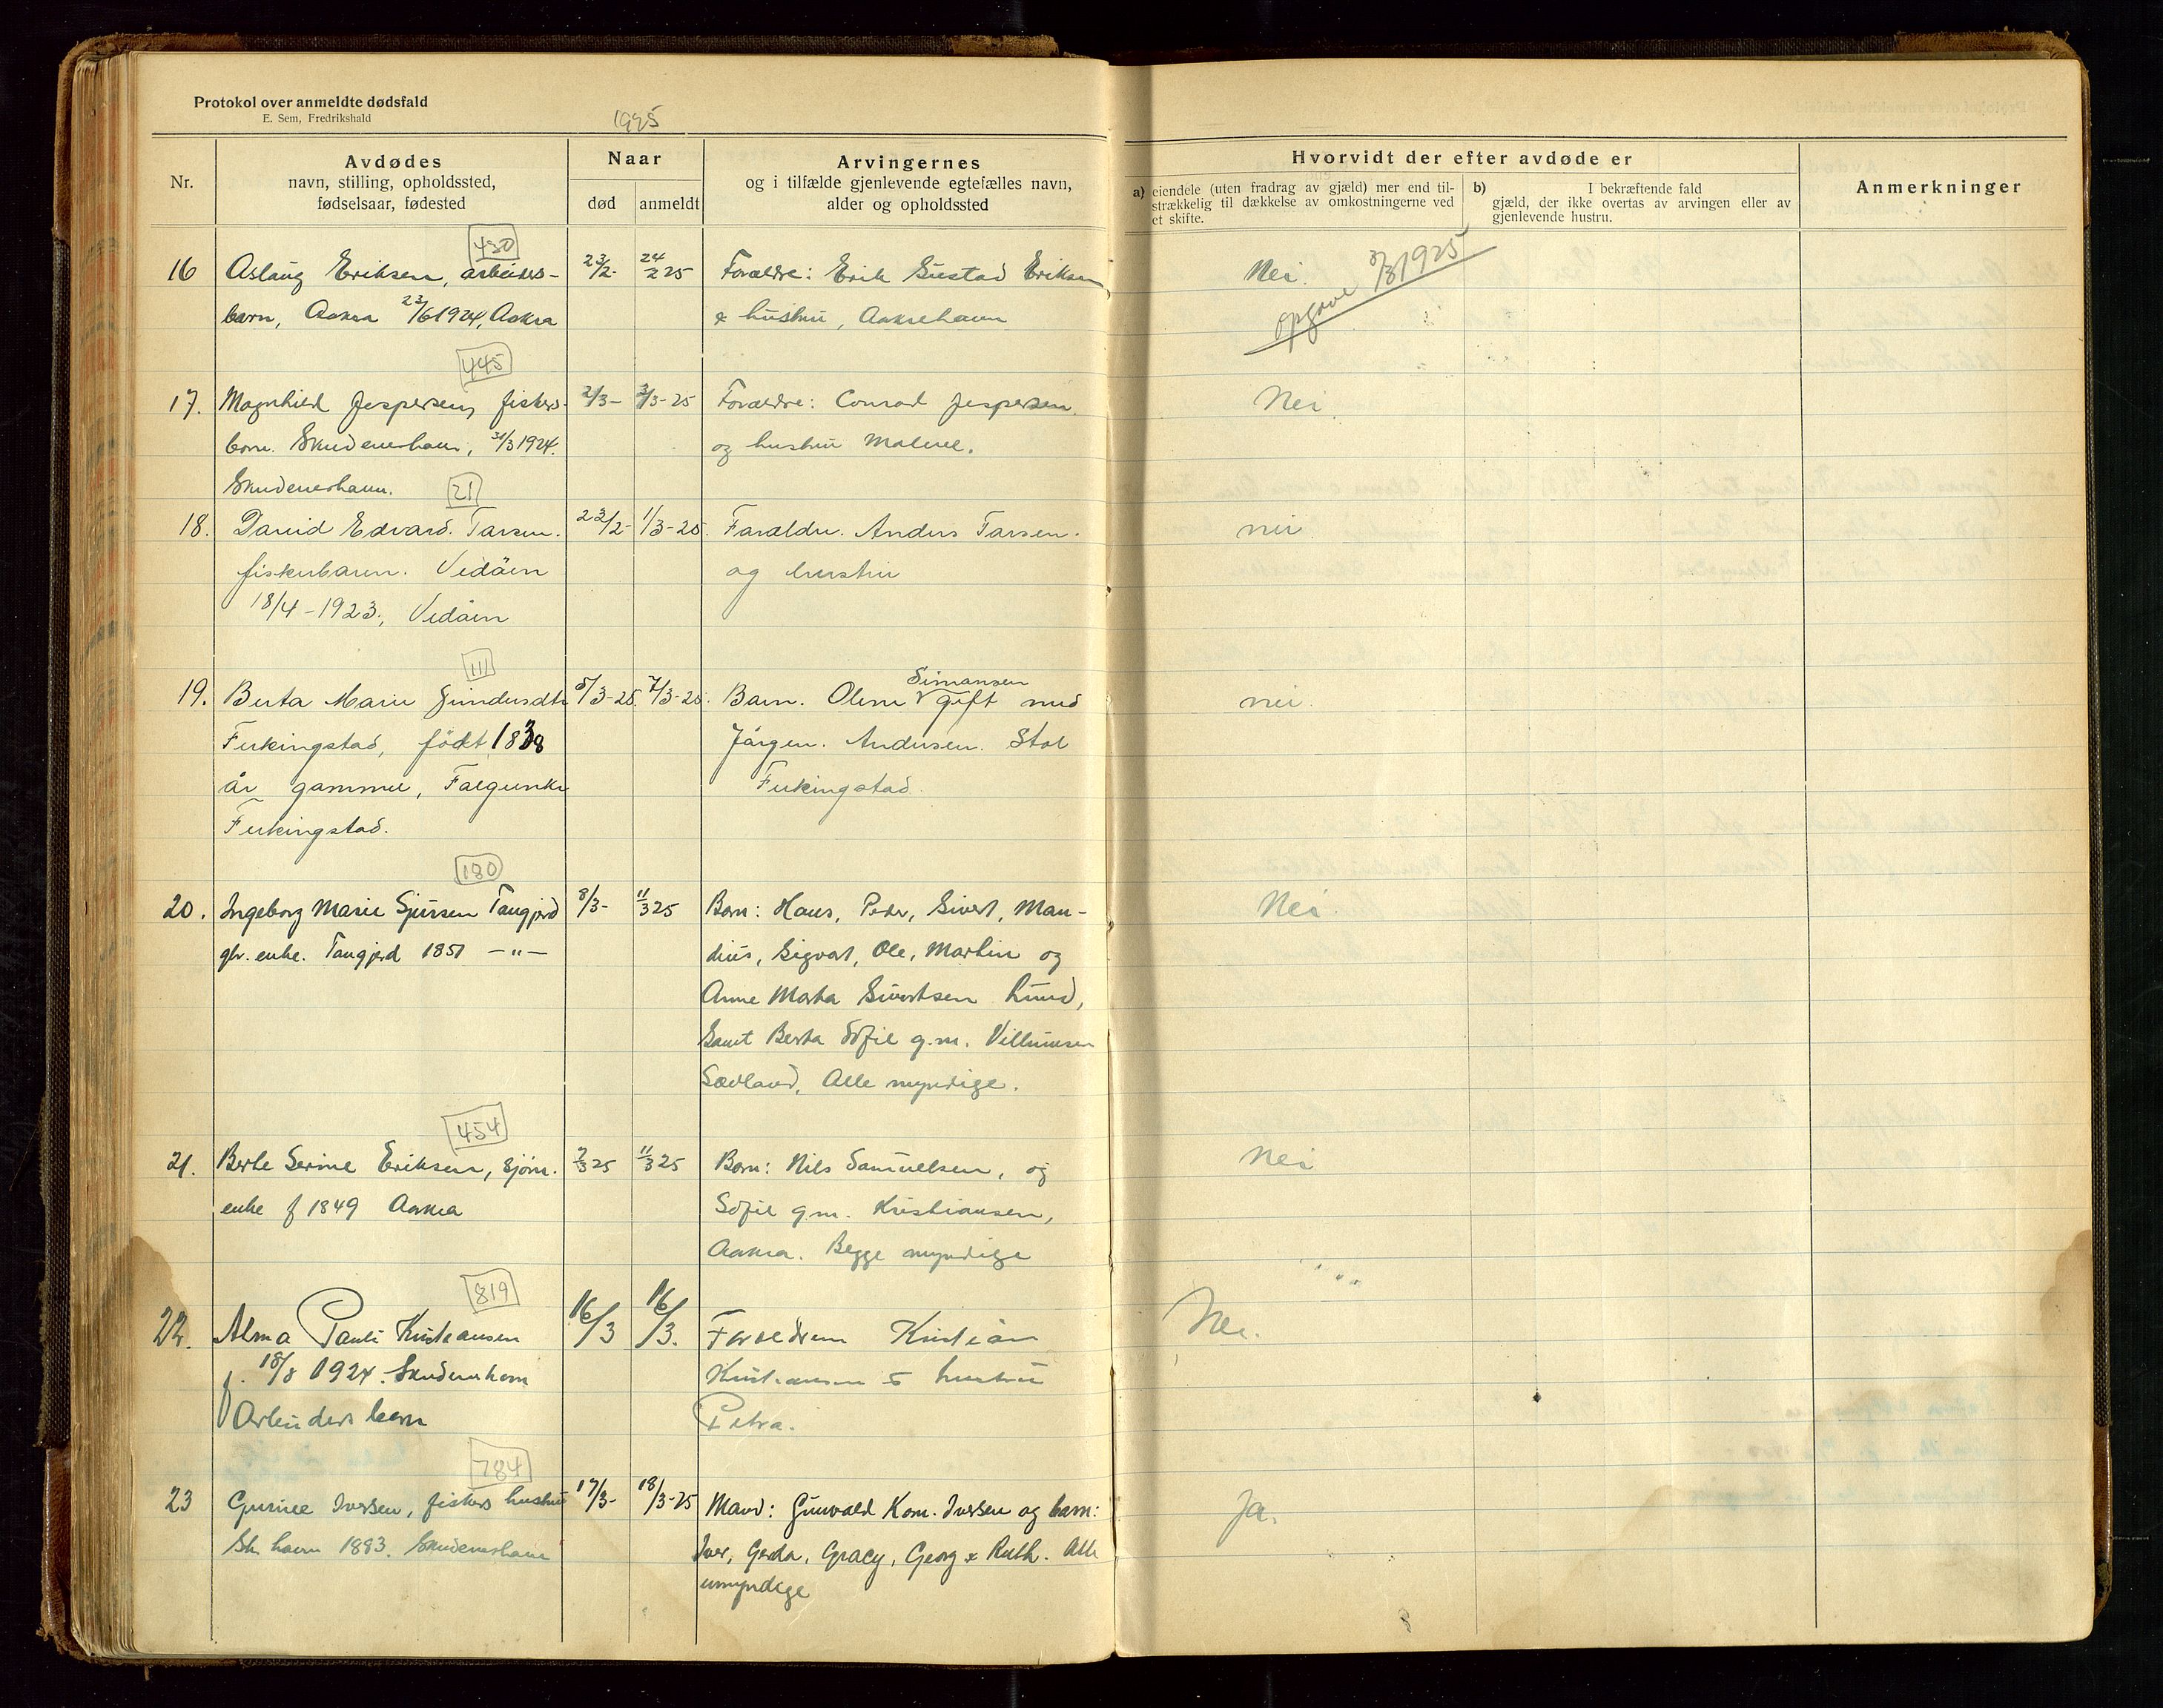 Protokol over anmeldte dødsfald
E. Sem, Fredrikshald
1925
Nr.
Avdødes
navn, stilling, opholdssted,
fødselsaar, fødested
Naar
død
anmeldt
Arvingernes
og i tilfælde gjenlevende egtefælles navn,
alder og opholdssted
Hvorvidt der efter avdøde er
a) eiendele (uten fradrag av gjæld) mer end til-
strækkelig til dækkelse av omkostningerne ved
et skifte.
b) I bekræftende fald
gjæld, der ikke overtas av arvingen eller av
gjenlevende hustru.
Anmerkninger
430
16 Aslaug Eriksen, arbeiders- 23/2- 24/2 25 Forældre: Erik Gustad Eriksen Nei.
barn, Aakra 23/6 1924, Aakra & hustru, Aakrehavn
opgave 3/3 1925
445
17. Magnhild Jespersen, fiskers- 2/3- 3/3-25 Forældre: Conrad Jespersen Nei.
barn. Skudeneshavn, 31/3 1924. og hustru Malene.
Skudeneshavn.
21
18. David Edvard. Tarsen. 23/2- 1/3-25. Forældre. Anders Tarsen. nei
fiskerbarn. Vedöen og hustru
18/4-1923, Vedöen
111
19. Berta Marie Gundersdtr 5/3-25. 7/3-25. Barn. Oline Simansen gift med nei.
Ferkingstad, födt 1838 Jörgen. Andersen. Stol
år gammel, Falgeenke Ferkingstad.
Ferkingstad.
180
20. Ingeborg Marie Sjursen Tangjerd 8/3- 11/3 25 Barn: Hans, Peder, Sivert, Man- Nei.
gbr. enke. Tangjerd 1851 -"- dius, Sigvart, Ole, Martin og
Anne Marta Sivertsen Lund,
Samt Berta Sofie g.m. Villumsen
Sævland, Alle myndige.
454
21. Berte Serine Eriksen, sjøm. 7/3 25 11/3 25 Barn: Nils Samuelsen, og Nei
enke f 1849 Aakra Sofie g.m. Kristiansen,
Aakra. Begge myndige
819
22. Alma Pauli Kristiansen 16/3 16/3. Forældrene Kristian Nei.
f. 18/8 1924. Skudeneshavn Kristiansen & hustru
Arbeiders barn Petra.
784
23 Gurine Iversen, fiskers hustru 17/3- 18/3-25 Mand: Gunvald Korn. Iversen og barn: Ja.
Sk. havn 1883. Skudeneshavn Iver, Gerda, Gracy, Georg & Ruth. Alle
umyndige